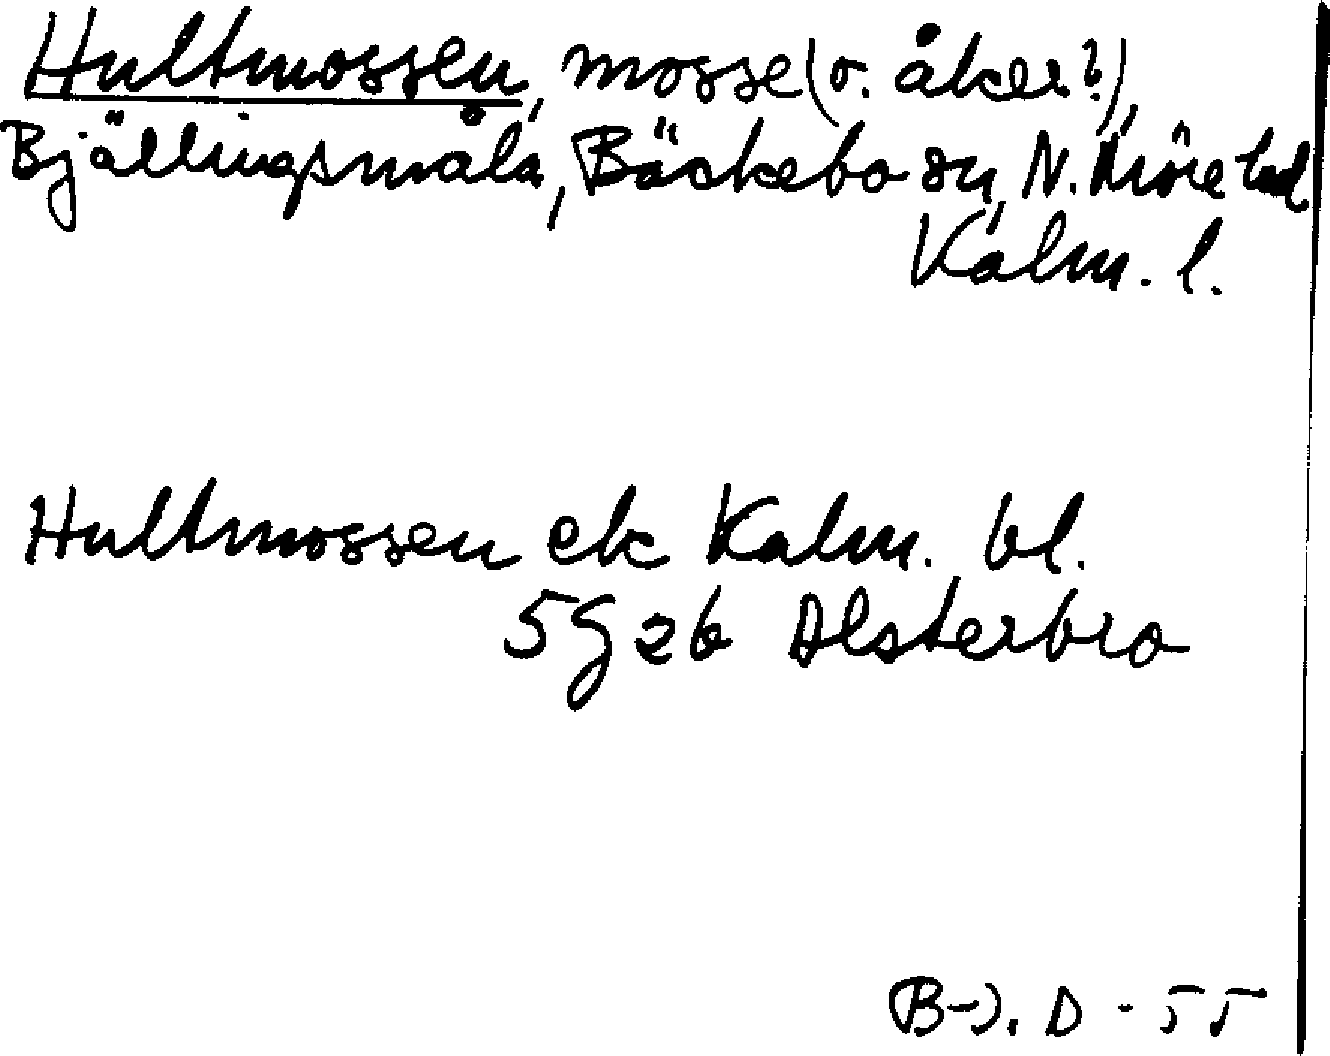 Hultmossen, mosse (o. åker?),
Bjällingsmåla, Bäckebo sn, N. Möre hd
Kalm. l.
Hultmossen ek Kalm. bl.
5G 2b Alsterbro
B-J. D - 55